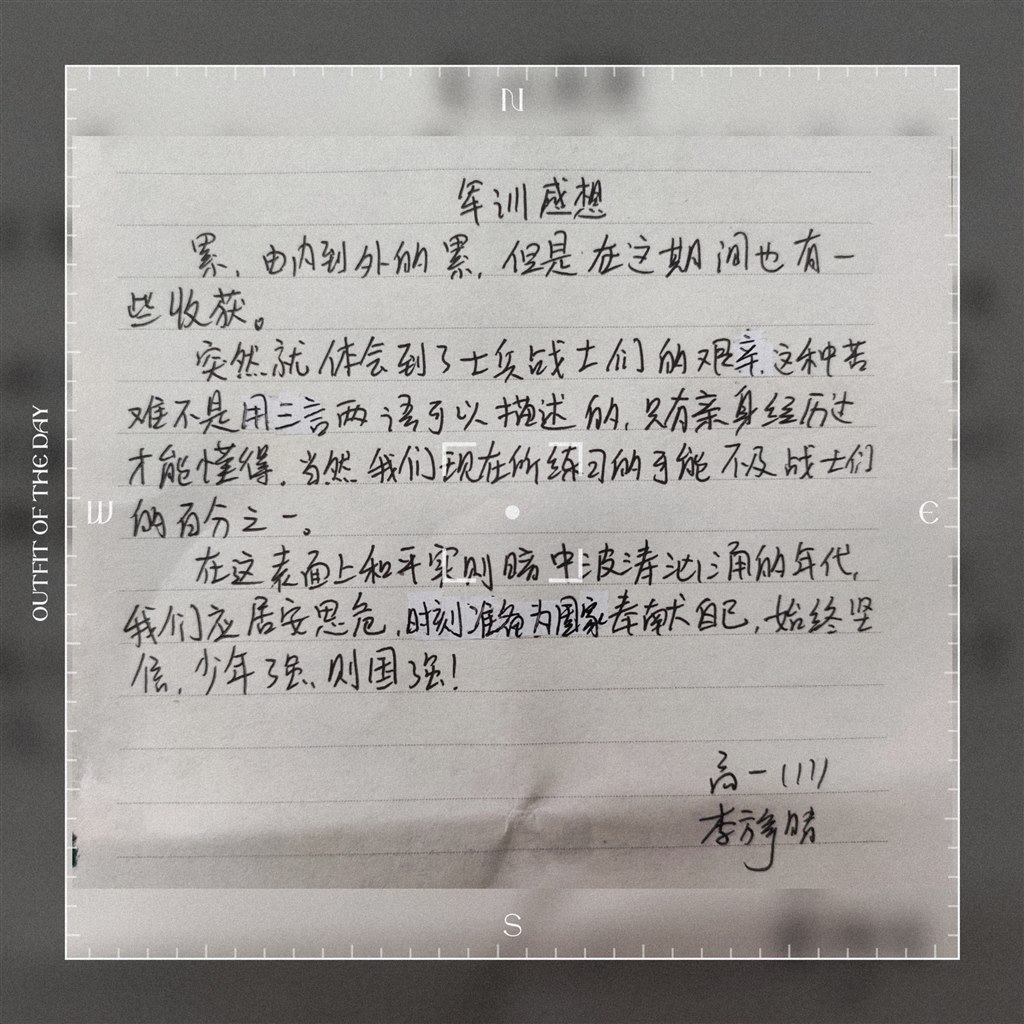 N
军训感想
累，由内到外的累，但是在这期间也有一
些收获。
突然就体会到了士兵战士们的艰辛，这种苦
难不是用三言两语可以描述的，只有亲身经历过
才能懂得。当然我们现在所练习的可能不及战士们
的百分之一。
在这表面上和平实则暗中波涛汹涌的年代，
我们应居安思危，时刻准备为国家奉献自己，始终坚
信，少年强、则国强！
高一(11)
李 晴
OUTFIT OF THE DAY
W
E
S